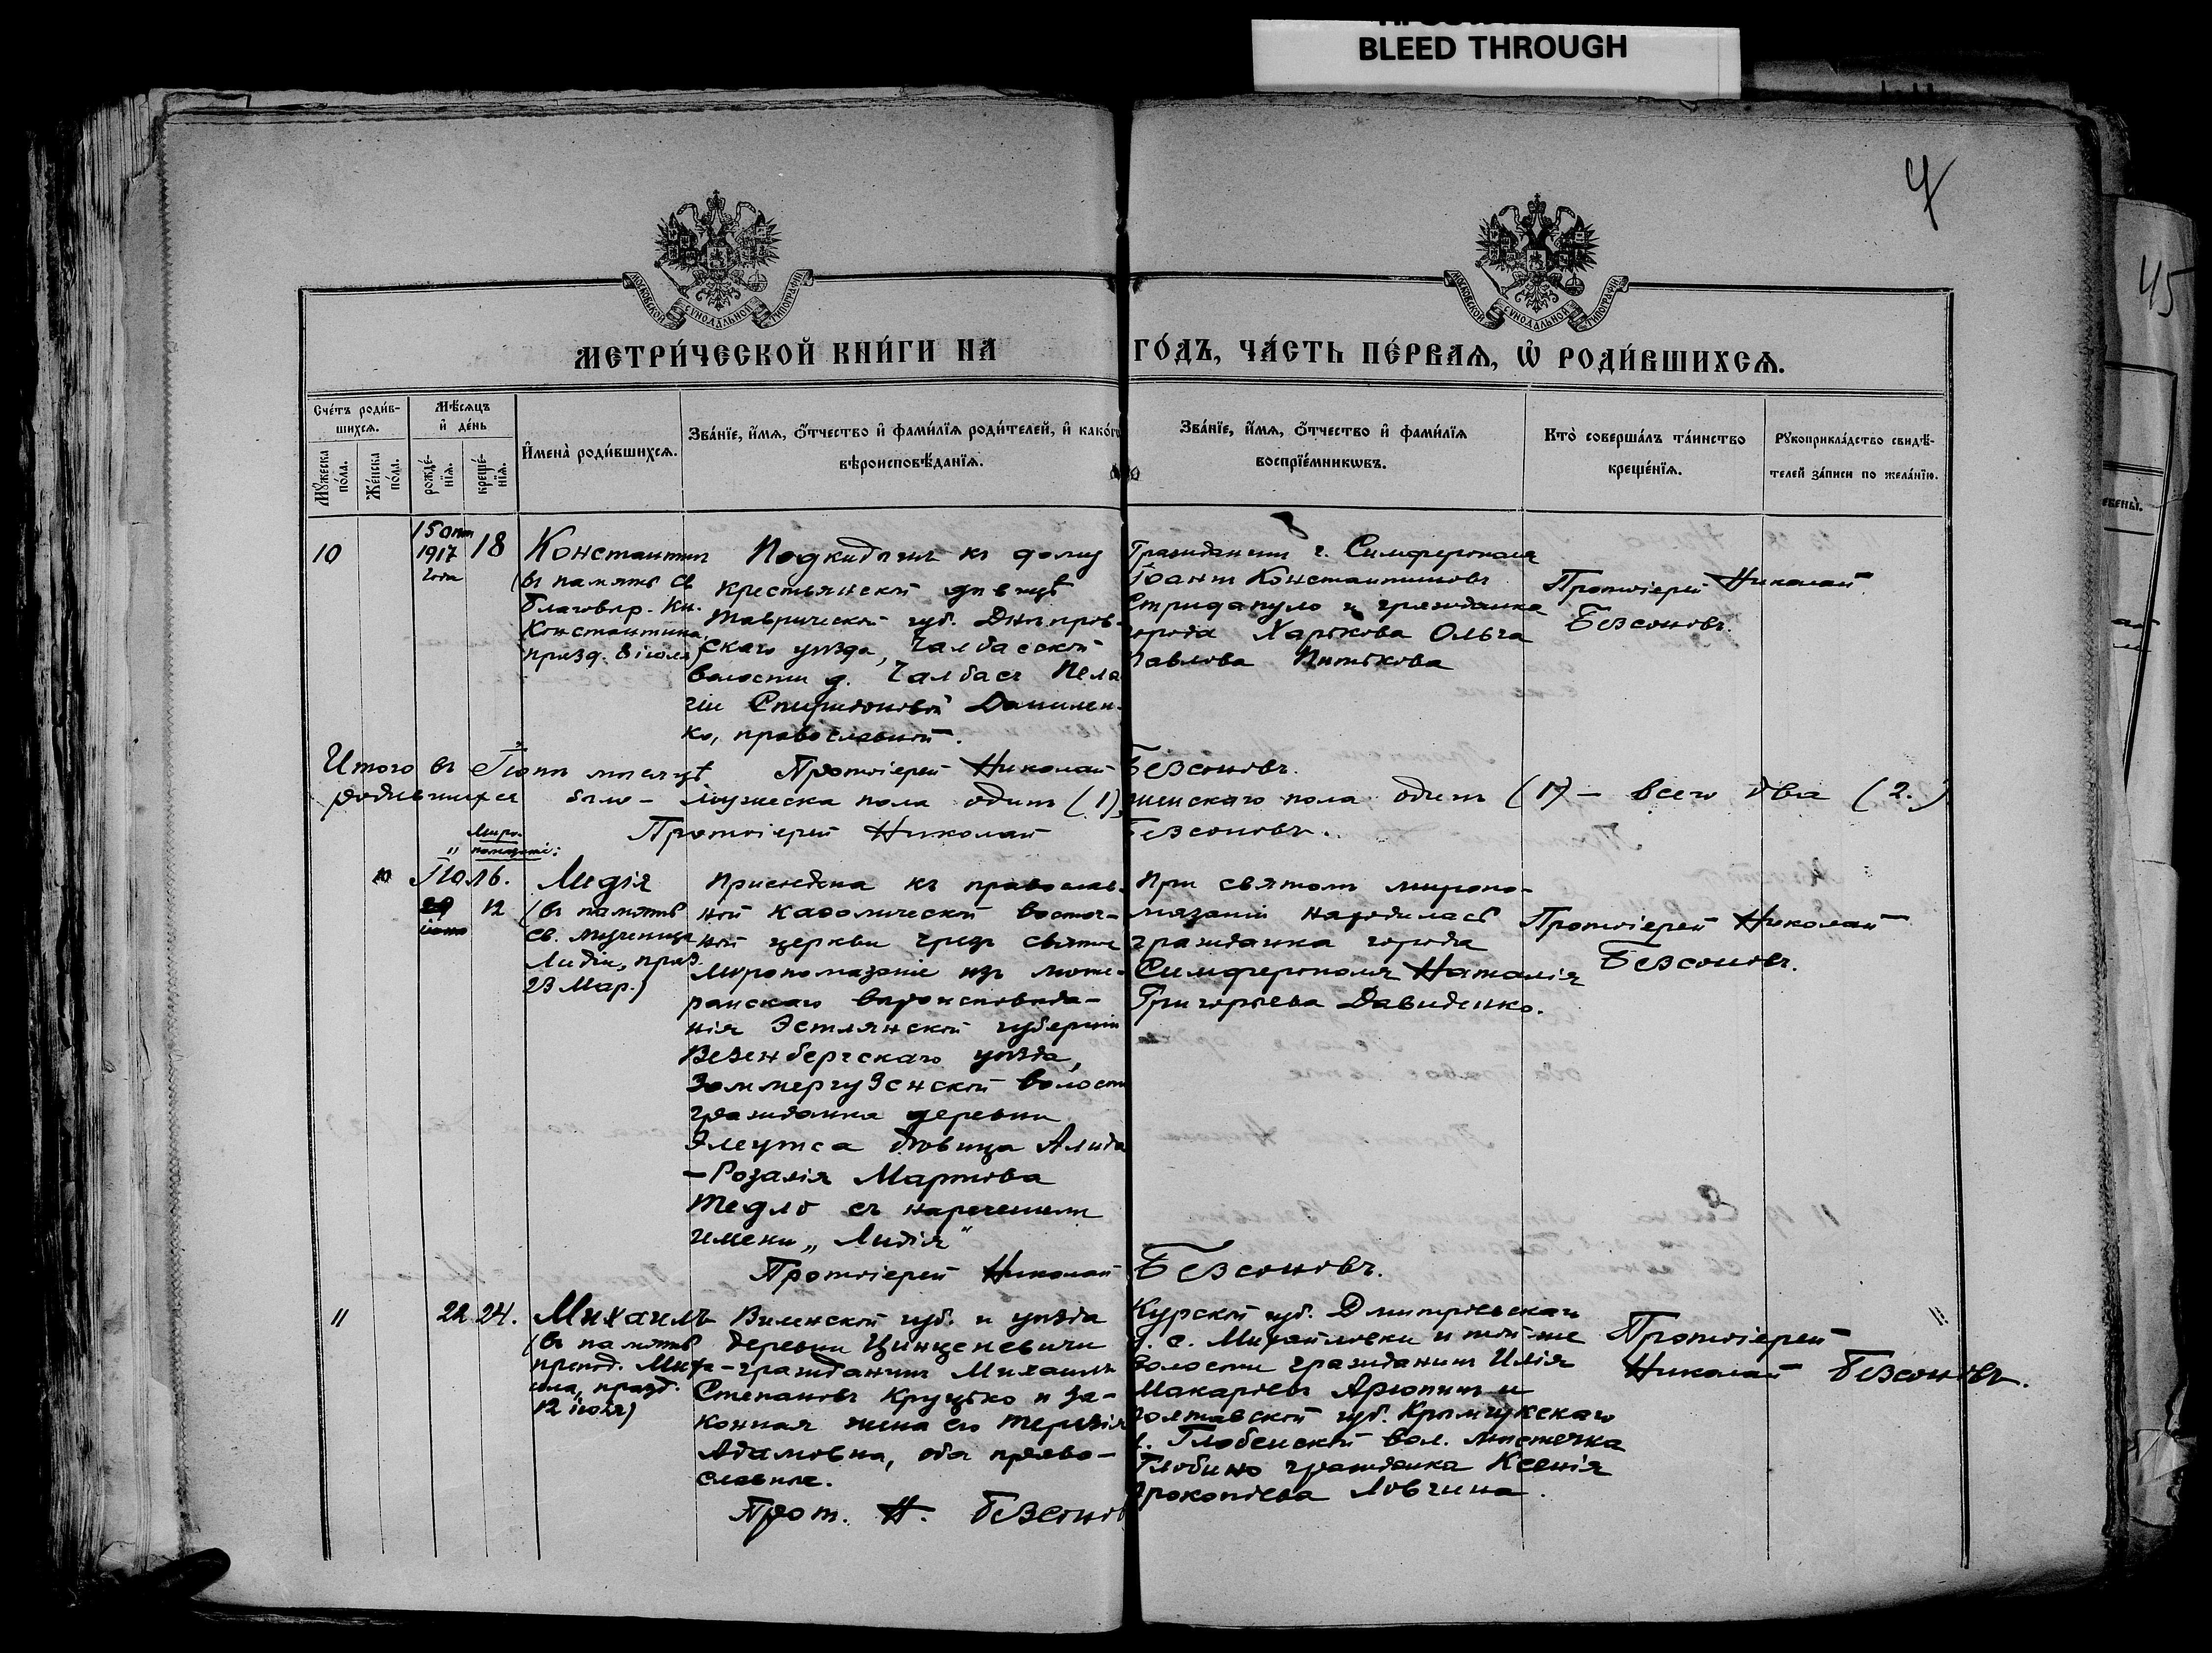 BLEED THROUGH
4
45
МОСКОВСКОЙ СѴНОДАЛЬНОЙ ТИПОГРАФІИ
МОСКОВСКОЙ СѴНОДАЛЬНОЙ ТИПОГРАФІИ
МЕТРИ́ЧЕСКОЙ КНИ́ГИ НА ГО́ДЪ, ЧА́СТЬ ПЕ́РВАѦ, Ѽ РОДИ́ВШИХСѦ.
Сче́тъ роди́в-
шихсѧ.
Мꙋ́жеска по́ла.
Же́нска по́ла.
Мѣ́сѧцъ
и҆ де́нь
рожде́-
нїѧ.
креще́-
нїѧ.
И҆мена̀ роди́вшихсѧ.
Зва́нїе, и҆́мѧ, ѻ҆́тчество и҆ фами́лїѧ роди́телей, и҆ како́гѡ
вѣроисповѣ́данїѧ.
Зва́нїе, и҆́мѧ, ѻ҆́тчество и҆ фами́лїѧ
воспрїе́мникѡвъ.
Кто̀ соверша́лъ та́инство
креще́нїѧ.
Рꙋкоприкла́дство свидѣ́-
телей за́писи по жела́нїю.
10
15
1917
года
18
Константинъ
(въ память св
благовѣр. Кн.
Константина,
празд. 8 іюля)
Подкидышъ къ дому
крестьянской дѣвицѣ
Таврической губ. Днѣпров-
скаго уѣзда, Чалбасской
волости д. Чалбасъ Пела
гіи Спиридоновой Данилен-
ко, православной.
Гражданинъ г. Симферополя
Іоаннъ Константиновъ
Стридапуло и гражданка
города Харькова Ольга
Павлова
Протоіерей Николай
Безсоновъ.
Протоіерей Николай Безсоновъ.
Итого въ Іюнѣ мѣсяцѣ
родившихся было – мужеска пола одинъ (1), женскаго пола одинъ (1) – всего два (2.)
Протоіерей Николай Безсоновъ.
Миро-
помазаніе:
10
Іюль.
12
Лидія
(въ память
св. мученицы
Лидіи, празд.
23 Мар.)
Присоедена къ православ-
ной каѳолической восточ-
ной церкви чрезъ святое
Мѵропомазаніе изъ люте-
ранскаго вѣроисповѣда-
нія Эстлянской губерніи
Везенбергскаго уѣзда,
Зоммергузенской волости
гражданка деревни
дѣвица Алида
– Розалія Мартова
Тедло съ нареченіемъ
имени „Лидія"
При святомъ миропо-
мазаніи находилась
гражданка города
Симферополя Наталія
Григорьева Давиденко.
Протоіерей Николай
Безсоновъ.
Протоіерей Николай Безсоновъ.
11
22
24.
Михаилъ
(въ память
препод. Миха-
ила, празд.
12 іюля)
Виленской губ. и уѣзда
деревни Цинценевичи
– гражданинъ Михаилъ
Степановъ Круцько и за-
конная жена его Терезія
Адамовна, оба право-
славные.
Прот. Н. Безсонов
Курской губ. Дмитріевскаго
у. с. Михайловки и той же
волости гражданинъ Илія
Макаріевъ Арюпинъ и
Полтавской губ. Кременчукскаго
у. Глобенской вол. мѣстечка
Глобино гражданка Ксенія
Прокопіева Ловчина.
Протоіерей
Николай Безсоновъ.